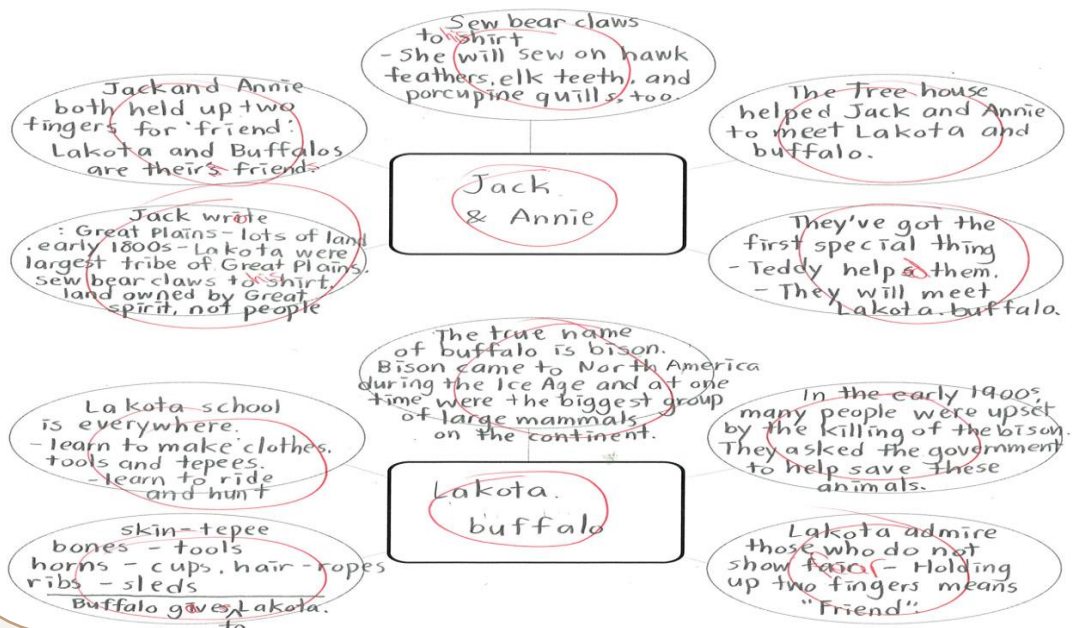 Sew bear claws
to his shirt
- She will sew on hawk
feathers, elk teeth, and
porcupine quills, too.
Jack and Annie
both held up two
fingers for 'friend'.
Lakota and Buffalos
are their friends.
The Tree house
helped Jack and Annie
to meet Lakota and
buffalo.
Jack
& Annie
Jack wrote
: Great Plains - lots of land
. early 1800s - Lakota were
largest tribe of Great Plains.
sew bear claws to his shirt.
land owned by Great
spirit, not people
They've got the
first special thing
- Teddy helped them.
- They will meet
Lakota. buffalo.
The true name
of buffalo is bison.
Bison came to North America
during the Ice Age and at one
time were the biggest group
of large mammals
on the continent.
Lakota school
is everywhere.
- learn to make clothes.
tools and tepees.
- learn to ride
and hunt
In the early 1900s,
many people were upset
by the killing of the bison.
They asked the government
to help save these
animals.
Lakota.
buffalo
skin - tepee
bones - tools
horns - cups, hair - ropes
ribs - sleds
Buffalo gaves Lakota.
to
Lakota admire
those who do not
show fear - Holding
up two fingers means
"Friend".